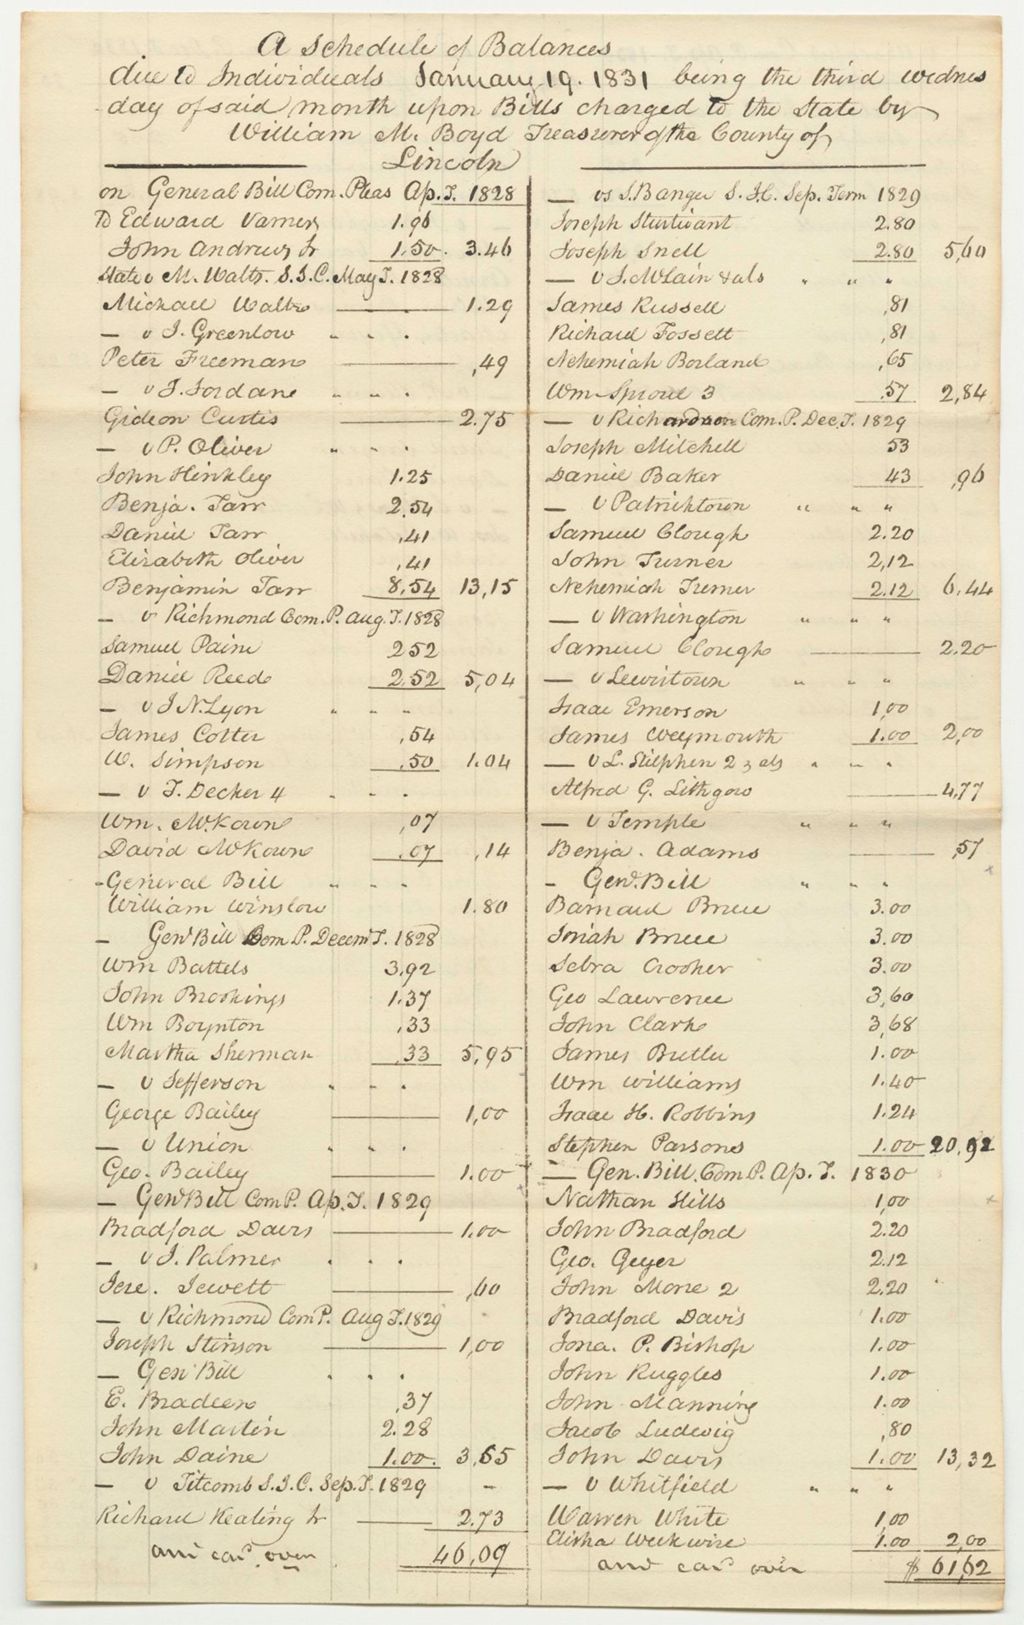 A Schedule of Balances
due to Individuals January 19. 1831 being the third wednes
day of said month upon Bills charged to the State by
William M. Boyd Treasurer of the County of
Lincoln
on General Bill Com. Pleas Ap. T. 1828
To Edward Varney 1.96
John Andrews Jr 1.50. 3.46
State v M. Walts. S.J.C. May T. 1828
Michael Walts 1.29
— v J. Greenlow " " "
Peter Freeman ,49
— v J. Jordane " " "
Gideon Curtis 2.75
— v P. Oliver " " "
John Hinkley 1.25
Benja. Tarr 2.54
Daniel Tarr ,41
Elizabeth Oliver ,41
Benjamin Tarr 8,54 13,15
— v Richmond Com. P. Aug. T. 1828
Samuel Paine 2 52
Daniel Reed 2.52 5,04
— v J. N. Lyon " " "
James Cotter ,54
W. Simpson .50 1.04
— v T. Decker 4 " " "
Wm. McKown ,07
David McKown .07 ,14
- General Bill " " "
William Winslow 1.80
— Genl Bill Com P. Decemr T. 1828
Wm Battels 3.92
John Brookings 1.37
Wm Boynton .33
Martha Sherman .33 5,95
— v Jefferson " " "
George Bailey 1,00
— v Union " " "
Geo. Bailey 1.00
— Genl Bill Com P. Ap. T. 1829
Bradford Davis 1.00
— v J. Palmer " " "
Jere. Jewett ,60
— v Richmond Com P. Aug T. 1829
Joseph Stinson 1,00
— Genl Bill " " "
E. Bradeen ,37
John Martin 2.28
John Daine 1.00. 3,65
— v Titcomb S.J.C. Sep. T. 1829 -
Richard Keating Jr 2.73
and card over 46,09
— vs S. Banger S.J.C. Sep. Term 1829
Joseph Sturtivant 2.80
Joseph Snell 2.80 5,60
— v J. McLain & als " " "
James Russell ,81
Richard Fossett ,81
Nehemiah Borland ,65
Wm Sproul 3 .57 2,84
— v Richardson Com. P. Dec. T. 1829
Joseph Mitchell 53
Daniel Baker 43 ,96
— v Patricktown " " "
Samuel Clough 2.20
John Turner 2,12
Nehemiah Turner 2.12 6.44
— v Washington " " "
Samuel Clough 2.20
— v Lewistown " " "
Isaac Emerson 1,00
James Weymouth 1.00 2,00
— v L. Stilphen 2 & als " " "
Alfred G. Lithgow 4,77
— v Temple " " "
Benja. Adams ,57
- Genl. Bill " " "
Barnard Bruce 3.00
Josiah Bruce 3.00
Sebra Crooker 3.00
Geo Lawrence 3,60
John Clark 3,68
James Butler 1.00
Wm Williams 1.40
Isaac H. Robbins 1.24
Stephen Parsons 1.00 20,92
— Gen. Bill. Com P. Ap. T. 1830
Nathan Hills 1,00
John Bradford 2.20
Geo. Geyer 2.12
John Morse 2 2.20
Bradford Davis 1.00
Jona. P. Bishop 1.00
John Ruggles 1.00
John Manning 1.00
Jacob Ludwig ,80
John Davis 1.00 13,32
— v Whitfield " " "
Warren White 1,00
Elisha Weekwire 1.00 2,00
and card over $ 61,62